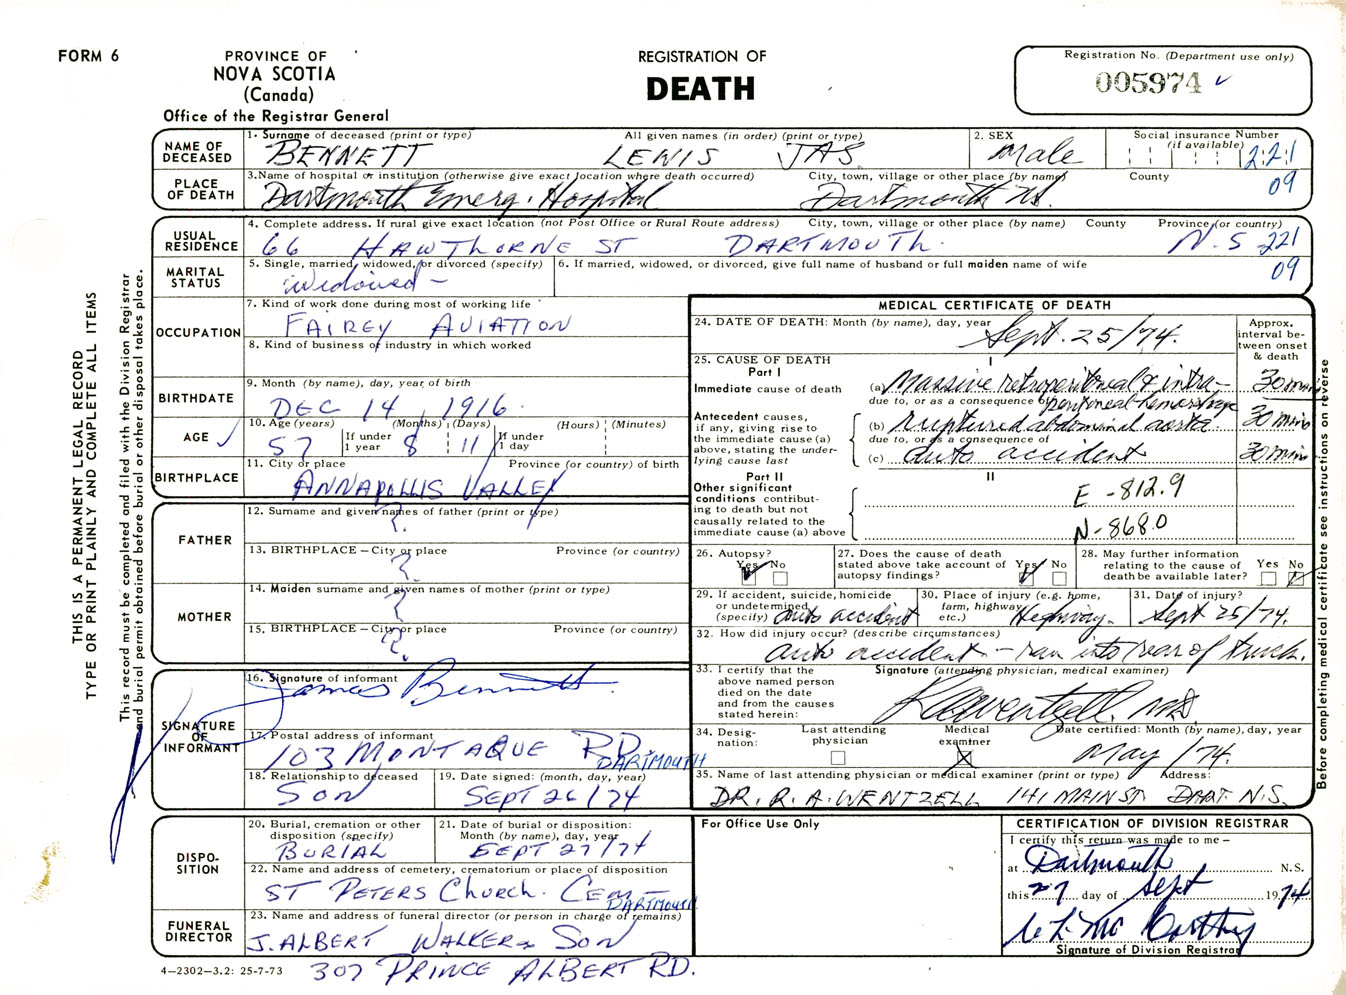 FORM 6
PROVINCE OF
NOVA SCOTIA
(Canada)
Office of the Registrar General
REGISTRATION OF
DEATH
Registration No. (Department use only)
005974
NAME OF DECEASED
1. Surname of deceased (print or type) All given names (in order) (print or type)
BENNETT LEWIS JAS.
2. SEX
Male
Social insurance Number (if available)
221
PLACE OF DEATH
3. Name of hospital or institution (otherwise give exact location where death occurred) City, town, village or other place (by name) County
Dartmouth Emerg. Hospital Dartmouth NS. 09
USUAL RESIDENCE
4. Complete address. If rural give exact location (not Post Office or Rural Route address) City, town, village or other place (by name) County Province (or country)
66 HAWTHORNE ST DARTMOUTH. N.S 221
MARITAL STATUS
5. Single, married, widowed, or divorced (specify)
Widowed -
6. If married, widowed, or divorced, give full name of husband or full maiden name of wife
09
OCCUPATION
7. Kind of work done during most of working life
FAIREY AVIATION
8. Kind of business or industry in which worked
BIRTHDATE
9. Month (by name), day, year of birth
DEC 14, 1916.
AGE
10. Age (years) (Months) (Days) (Hours) (Minutes)
If under 1 year If under 1 day
57 8 11
BIRTHPLACE
11. City or place Province (or country) of birth
ANNAPOLLIS VALLEY
FATHER
12. Surname and given names of father (print or type)
?
13. BIRTHPLACE – City or place Province (or country)
?
MOTHER
14. Maiden surname and given names of mother (print or type)
?
15. BIRTHPLACE – City or place Province (or country)
?
SIGNATURE OF INFORMANT
16. Signature of informant
James Bennett.
17. Postal address of informant
103 MONTAQUE RD. DARTMOUTH
18. Relationship to deceased
SON
19. Date signed: (month, day, year)
SEPT 26/74
DISPO-SITION
20. Burial, cremation or other disposition (specify)
BURIAL
21. Date of burial or disposition: Month (by name), day, year
SEPT 27/74
22. Name and address of cemetery, crematorium or place of disposition
ST PETERS CHURCH. CEMT DARTMOUTH
FUNERAL DIRECTOR
23. Name and address of funeral director (or person in charge of remains)
J. ALBERT WALKER & SON
307 PRINCE ALBERT RD.
4–2302–3.2: 25-7-73
MEDICAL CERTIFICATE OF DEATH
24. DATE OF DEATH: Month (by name), day, year
Sept. 25/74.
Approx. interval between onset & death
25. CAUSE OF DEATH
Part I
I
Immediate cause of death
(a) Massive retroperitoneal & intra- 30 mins
due to, or as a consequence of peritoneal hemorrhage
Antecedent causes, if any, giving rise to the immediate cause (a) above, stating the underlying cause last
(b) ruptured abdominal aorta 30 mins
due to, or as a consequence of
(c) auto accident 30 mins
Part II
II
Other significant conditions contributing to death but not causally related to the immediate cause (a) above
E -812.9
N-868.0
26. Autopsy?
Yes No
27. Does the cause of death stated above take account of autopsy findings?
Yes No
28. May further information relating to the cause of death be available later?
Yes No
29. If accident, suicide, homicide or undetermined (specify)
auto accident
30. Place of injury (e.g. home, farm, highway etc.)
Highway.
31. Date of injury?
Sept 25/74.
32. How did injury occur? (describe circumstances)
auto accident – ran into rear of truck.
33. I certify that the above named person died on the date and from the causes stated herein:
Signature (attending physician, medical examiner)
RAWentzell. MD
34. Designation:
Last attending physician
Medical examiner
Date certified: Month (by name), day, year
May /74.
35. Name of last attending physician or medical examiner (print or type) Address:
DR. R. A. WENTZELL 141 MAIN ST DART. N.S.
For Office Use Only
CERTIFICATION OF DIVISION REGISTRAR
I certify this return was made to me –
at Dartmouth N.S.
this 27 day of Sept 1974
Signature of Division Registrar
THIS IS A PERMANENT LEGAL RECORD
TYPE OR PRINT PLAINLY AND COMPLETE ALL ITEMS
This record must be completed and filed with the Division Registrar
and burial permit obtained before burial or other disposal takes place.
Before completing medical certificate see instructions on reverse